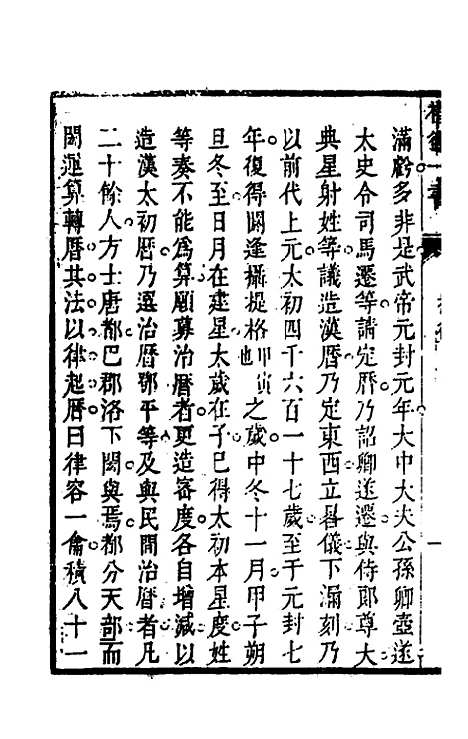 滿虧多非是武帝元封元年大中大夫公孫卿壺遂
太史令司馬遷等請定曆乃詔卿遂遷與侍郎尊大
典星射姓等議造漢曆乃定東西立晷儀下漏刻乃
以前代上元太初四千六百一十七歲至于元封七
年復得閼逢攝提格甲寅也之歲中冬十一月甲子朔
旦冬至日月在建星大歲在子已得太初本星度姓
等奏不能爲算願募治曆者更造密度各自增減以
造漢太初曆乃選治曆鄧平等及與民間治曆者凡
二十餘人方士唐都巴郡洛下閎與焉都分天部而
閎運算轉曆其法以律起曆曰律容一龠積八十一